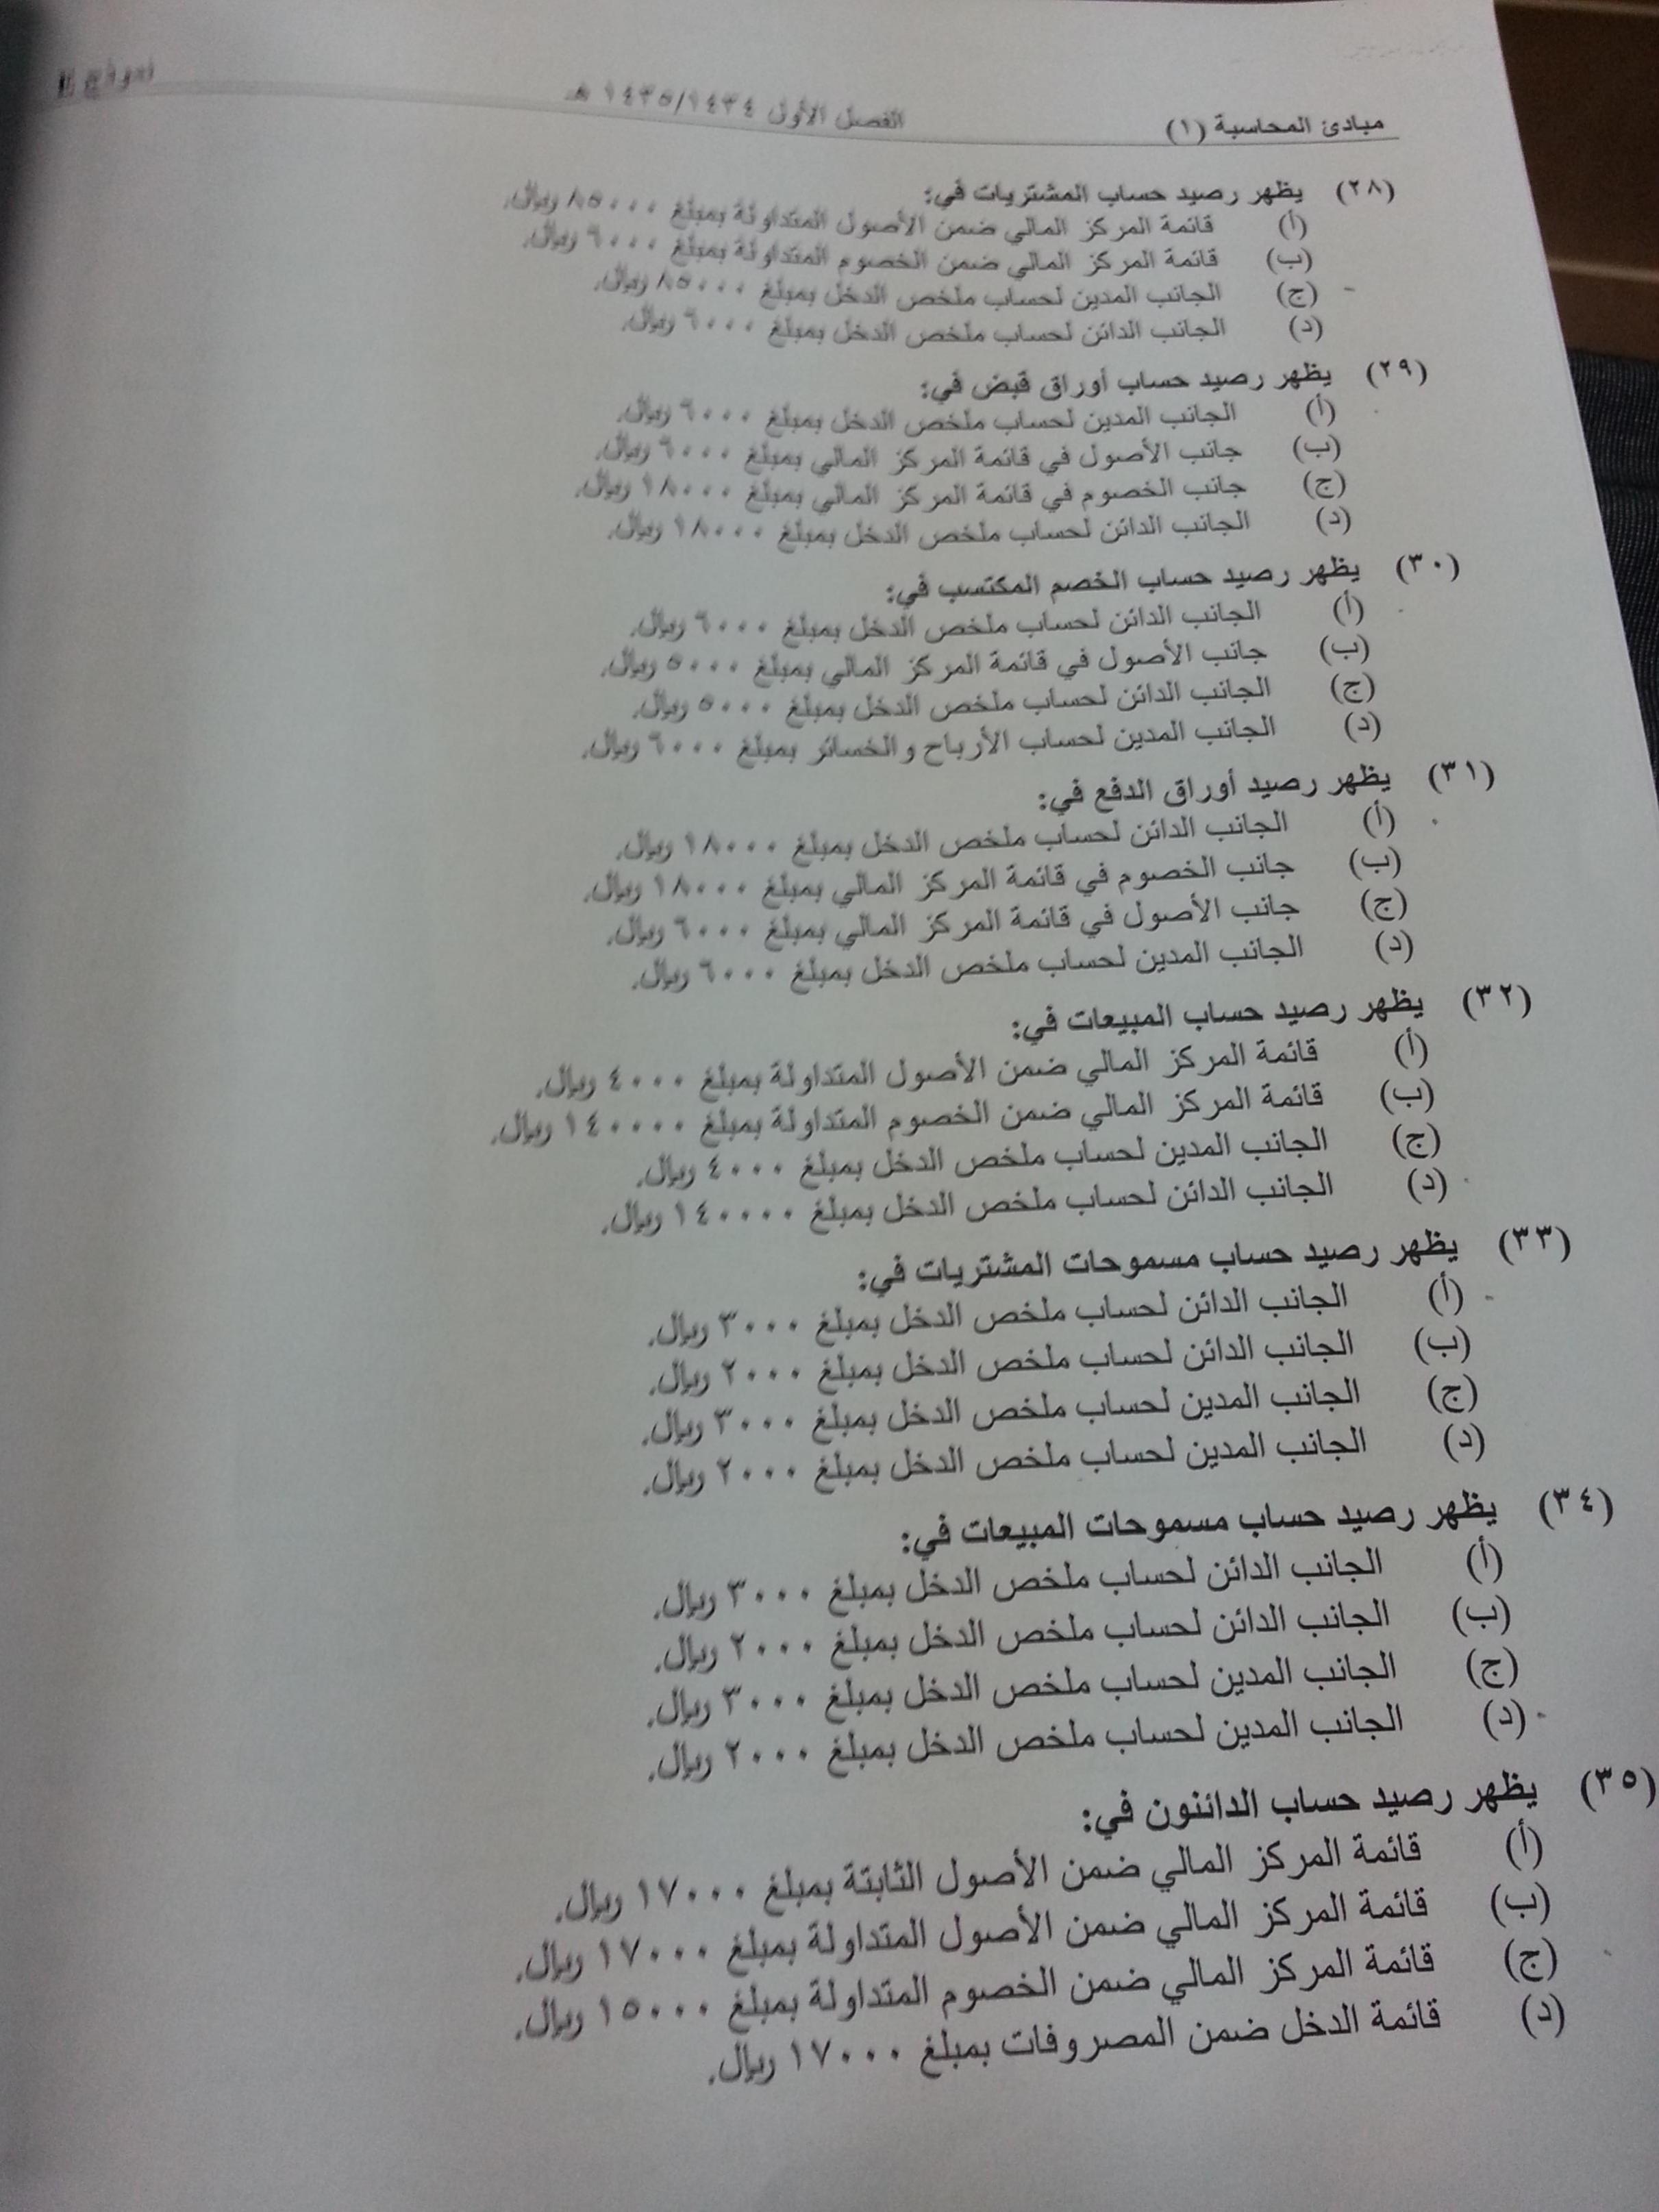 مبادئ المحاسبة (١) الفصل الأول ١٤٣٥/١٤٣٤ هـ نموذج
(٢٨) يظهر رصيد حساب المشتريات في:
(أ) قائمة المركز المالي ضمن الأصول المتداولة بمبلغ ٨٥٠٠٠ ريال.
(ب) قائمة المركز المالي ضمن الخصوم المتداولة بمبلغ ٦٠٠٠ ريال.
(ج) الجانب المدين لحساب ملخص الدخل بمبلغ ٨٥٠٠٠ ريال.
(د) الجانب الدائن لحساب ملخص الدخل بمبلغ ٦٠٠٠ ريال.
(٢٩) يظهر رصيد حساب أوراق قبض في:
(أ) الجانب المدين لحساب ملخص الدخل بمبلغ ٦٠٠٠ ريال.
(ب) جانب الأصول في قائمة المركز المالي بمبلغ ٦٠٠٠ ريال.
(ج) جانب الخصوم في قائمة المركز المالي بمبلغ ١٨٠٠٠ ريال.
(د) الجانب الدائن لحساب ملخص الدخل بمبلغ ١٨٠٠٠ ريال.
(٣٠) يظهر رصيد حساب الخصم المكتسب في:
(أ) الجانب الدائن لحساب ملخص الدخل بمبلغ ٦٠٠٠ ريال.
(ب) جانب الأصول في قائمة المركز المالي بمبلغ ٥٠٠٠ ريال.
(ج) الجانب الدائن لحساب ملخص الدخل بمبلغ ٥٠٠٠ ريال.
(د) الجانب المدين لحساب الأرباح والخسائر بمبلغ ٦٠٠٠ ريال.
(٣١) يظهر رصيد أوراق الدفع في:
(أ) الجانب الدائن لحساب ملخص الدخل بمبلغ ١٨٠٠٠ ريال.
(ب) جانب الخصوم في قائمة المركز المالي بمبلغ ١٨٠٠٠ ريال.
(ج) جانب الأصول في قائمة المركز المالي بمبلغ ٦٠٠٠ ريال.
(د) الجانب المدين لحساب ملخص الدخل بمبلغ ٦٠٠٠ ريال.
(٣٢) يظهر رصيد حساب المبيعات في:
(أ) قائمة المركز المالي ضمن الأصول المتداولة بمبلغ ٤٠٠٠ ريال.
(ب) قائمة المركز المالي ضمن الخصوم المتداولة بمبلغ ١٤٠٠٠٠ ريال.
(ج) الجانب المدين لحساب ملخص الدخل بمبلغ ٤٠٠٠ ريال.
(د) الجانب الدائن لحساب ملخص الدخل بمبلغ ١٤٠٠٠٠ ريال.
(٣٣) يظهر رصيد حساب مسموحات المشتريات في:
(أ) الجانب الدائن لحساب ملخص الدخل بمبلغ ٣٠٠٠ ريال.
(ب) الجانب الدائن لحساب ملخص الدخل بمبلغ ٢٠٠٠ ريال.
(ج) الجانب المدين لحساب ملخص الدخل بمبلغ ٣٠٠٠ ريال.
(د) الجانب المدين لحساب ملخص الدخل بمبلغ ٢٠٠٠ ريال.
(٣٤) يظهر رصيد حساب مسموحات المبيعات في:
(أ) الجانب الدائن لحساب ملخص الدخل بمبلغ ٣٠٠٠ ريال.
(ب) الجانب الدائن لحساب ملخص الدخل بمبلغ ٢٠٠٠ ريال.
(ج) الجانب المدين لحساب ملخص الدخل بمبلغ ٣٠٠٠ ريال.
(د) الجانب المدين لحساب ملخص الدخل بمبلغ ٢٠٠٠ ريال.
(٣٥) يظهر رصيد حساب الدائنون في:
(أ) قائمة المركز المالي ضمن الأصول الثابتة بمبلغ ١٧٠٠٠ ريال.
(ب) قائمة المركز المالي ضمن الأصول المتداولة بمبلغ ١٧٠٠٠ ريال.
(ج) قائمة المركز المالي ضمن الخصوم المتداولة بمبلغ ١٥٠٠٠ ريال.
(د) قائمة الدخل ضمن المصروفات بمبلغ ١٧٠٠٠ ريال.